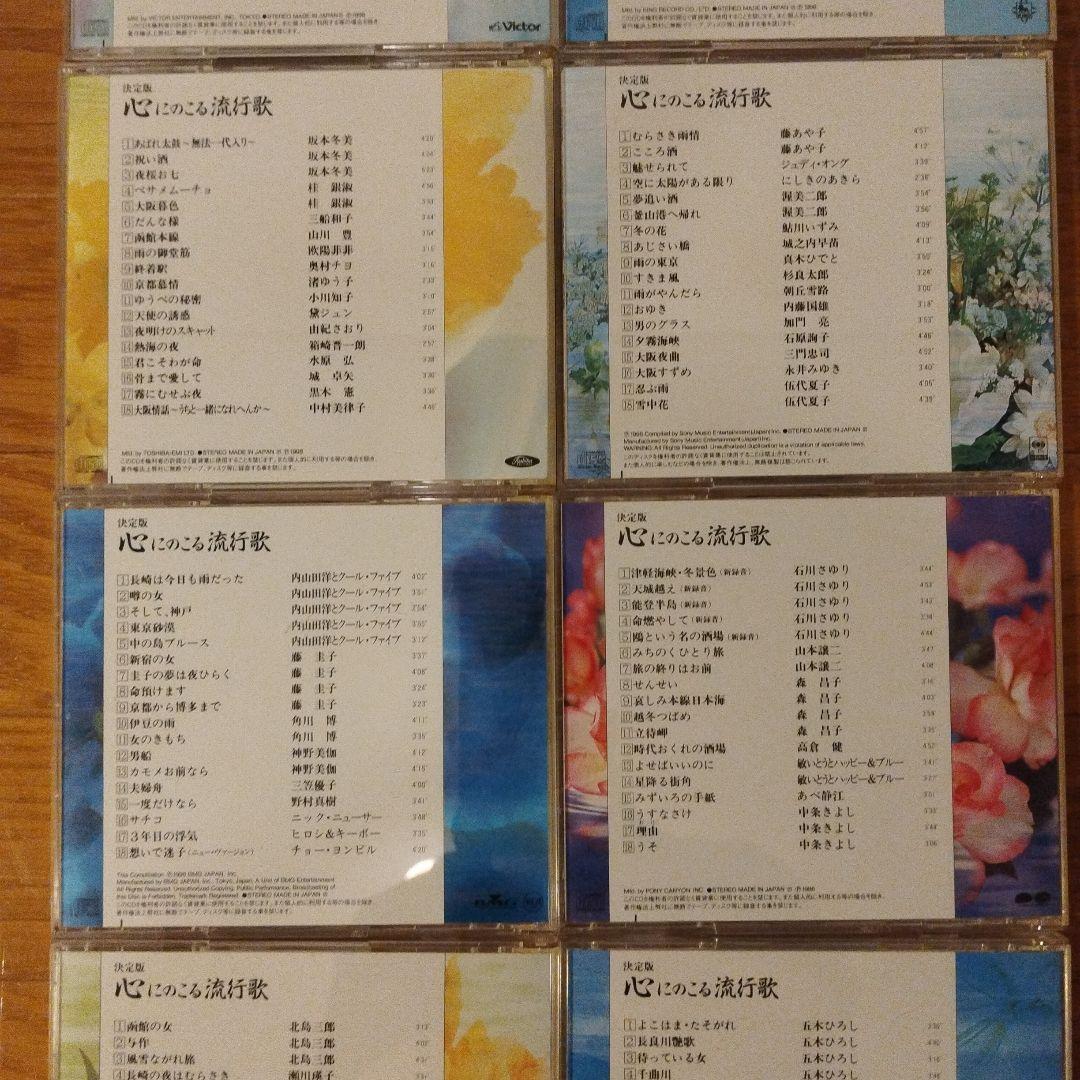 Mfd. by VICTOR ENTERTAINMENT, INC. TOKYO, ●STEREO MADE IN JAPAN
Victor
Mfd. by KING RECORD CO., LTD. ●STEREO MADE IN JAPAN
決定版
心にのこる流行歌
1 あばれ太鼓〜無法一代入り〜 坂本冬美 4'20"
2 祝い酒 坂本冬美
3 夜桜お七 坂本冬美
4 ベサメムーチョ 桂 銀淑
5 大阪暮色 桂 銀淑
6 だんな様 三船和子 3'44"
7 函館本線 山川 豊 3'54"
8 雨の御堂筋 欧陽菲菲
9 終着駅 奥村チヨ 3'16"
10 京都慕情 渚ゆう子
11 ゆうべの秘密 小川知子
12 天使の誘惑 黛ジュン
13 夜明けのスキャット 由紀さおり 3'04"
14 熱海の夜 箱崎晋一朗 2'57"
15 君こそわが命 水原 弘
16 骨まで愛して 城 卓矢
17 霧にむせぶ夜 黒木 憲
18 大阪情話〜うちと一緒になれへんか〜 中村美律子 4'46"
Mfd. by TOSHIBA-EMI LTD. ●STEREO MADE IN JAPAN Ⓟ 1998
決定版
心にのこる流行歌
1 むらさき雨情 藤あや子 4'57"
2 こころ酒 藤あや子 4'12"
3 魅せられて ジュディ・オング
4 空に太陽がある限り にしきのあきら
5 夢追い酒 渥美二郎 3'54"
6 釜山港へ帰れ 渥美二郎
7 冬の花 鮎川いずみ
8 あじさい橋 城之内早苗 4'13"
9 雨の東京 真木ひでと
10 すきま風 杉良太郎 3'24"
11 雨がやんだら 朝丘雪路 3'00"
12 おゆき 内藤国雄 3'18"
13 男のグラス 加門 亮 3'53"
14 夕霧海峡 石原詢子 4'46"
15 大阪夜曲 三門忠司 4'02"
16 大阪すずめ 永井みゆき 3'40"
17 忍ぶ雨 伍代夏子
18 雪中花 伍代夏子
Ⓟ 1998 Compiled by Sony Music Entertainment(Japan)Inc. ●STEREO MADE IN JAPAN
Manufactured by Sony Music Entertainment(Japan)Inc.
WARNING: All Rights Reserved. Unauthorized duplication is a violation of applicable laws.
決定版
心にのこる流行歌
1 長崎は今日も雨だった 内山田洋とクール・ファイブ 4'02"
2 噂の女 内山田洋とクール・ファイブ
3 そして、神戸 内山田洋とクール・ファイブ
4 東京砂漠 内山田洋とクール・ファイブ
5 中の島ブルース 内山田洋とクール・ファイブ 3'12"
6 新宿の女 藤 圭子
7 圭子の夢は夜ひらく 藤 圭子
8 命預けます 藤 圭子 3'24"
9 京都から博多まで 藤 圭子 3'23"
10 伊豆の雨 角川 博 4'11"
11 女のきもち 角川 博
12 男船 神野美伽 4'12"
13 カモメお前なら 神野美伽
14 夫婦舟 三笠優子
15 一度だけなら 野村真樹 3'41"
16 サチコ ニック・ニューサー 3'48"
17 3年目の浮気 ヒロシ&キーボー 3'35"
18 想いで迷子(ニュー・ヴァージョン) チョー・ヨンピル 4'20"
This Compilation Ⓟ 1998 BMG JAPAN, Inc.
Manufactured by BMG JAPAN, Inc., Tokyo, Japan, A Unit of BMG Entertainment
All Rights Reserved. Unauthorized Copying, Public Performance, Broadcasting of
this Disc is Forbidden.
BMG
決定版
心にのこる流行歌
1 津軽海峡・冬景色(新録音) 石川さゆり 3'44"
2 天城越え(新録音) 石川さゆり 4'53"
3 能登半島(新録音) 石川さゆり 3'43"
4 命燃やして(新録音) 石川さゆり
5 鴎という名の酒場(新録音) 石川さゆり 4'44"
6 みちのくひとり旅 山本譲二 3'47"
7 旅の終りはお前 山本譲二 4'08"
8 せんせい 森 昌子
9 哀しみ本線日本海 森 昌子 4'03"
10 越冬つばめ 森 昌子
11 立待岬 森 昌子
12 時代おくれの酒場 高倉 健
13 よせばいいのに 敏いとうとハッピー&ブルー 3'41"
14 星降る街角 敏いとうとハッピー&ブルー
15 みずいろの手紙 あべ静江
16 うすなさけ 中条きよし
17 理由 中条きよし 3'44"
18 うそ 中条きよし 3'06"
Mfd. by PONY CANYON INC. ●STEREO MADE IN JAPAN Ⓟ 1998
決定版
心にのこる流行歌
1 函館の女 北島三郎 3'13"
2 与作 北島三郎
3 風雪ながれ旅 北島三郎
4 長崎の夜はむらさき 瀬川瑛子
決定版
心にのこる流行歌
1 よこはま・たそがれ 五木ひろし
2 長良川艶歌 五木ひろし
3 待っている女 五木ひろし
4 千曲川 五木ひろし